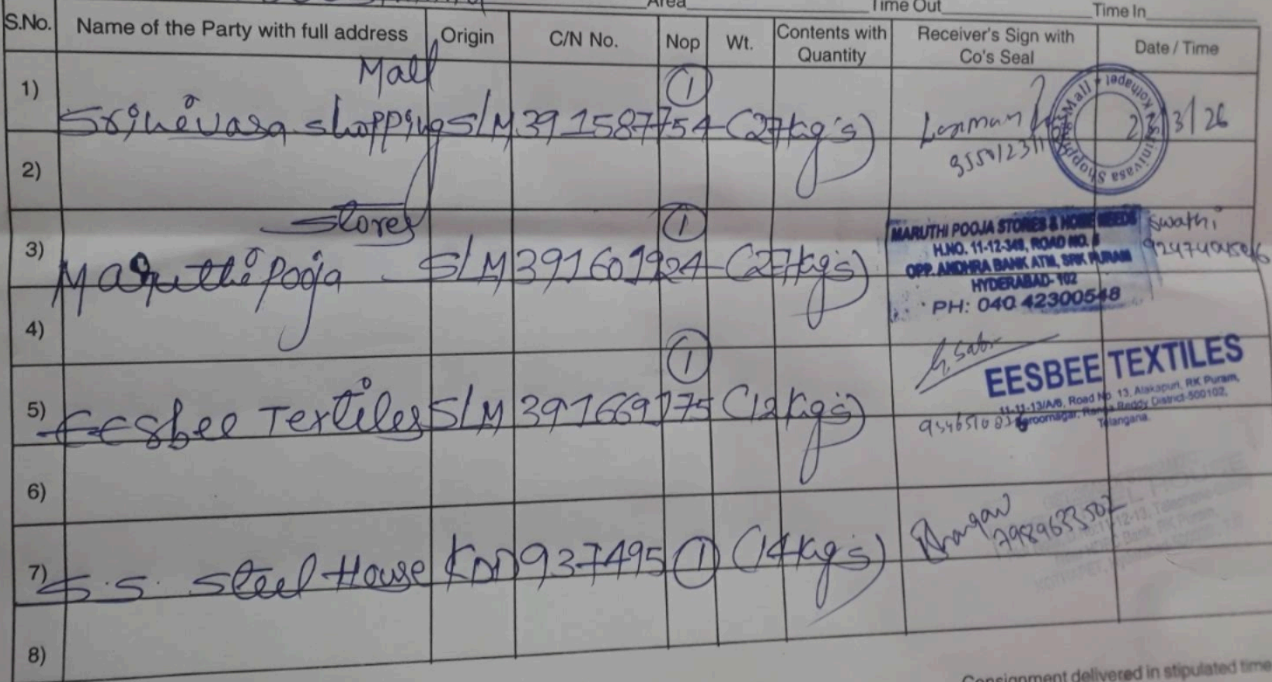 Area Time Out Time In
S.No. Name of the Party with full address Origin C/N No. Nop Wt. Contents with Quantity Receiver's Sign with Co's Seal Date / Time
Mall
1) Srinivasa shopping S/M 391587754 1 (27kg's) Laxman 2 /3/26
2)
Stores
3) Maruthi Pooja S/M 391601924 1 (27kg's)
MARUTHI POOJA STORES & HOME NEEDS
H.NO. 11-12-348, ROAD NO.
OPP. ANDHRA BANK ATM, SRK PURAM
HYDERABAD- 102
PH: 040 42300548
Swathi
4)
5) Eesbee Textiles S/M 391669775 1 (12kg's)
EESBEE TEXTILES
11-11-13/A/6, Road No. 13, Alakapuri, RK Puram,
Saroornagar, Ranga Reddy District-500102,
Telangana.
6)
7) S.S. Steel House KDD 937495 1 (14kg's)
7989633502
8)
Consignment delivered in stipulated time